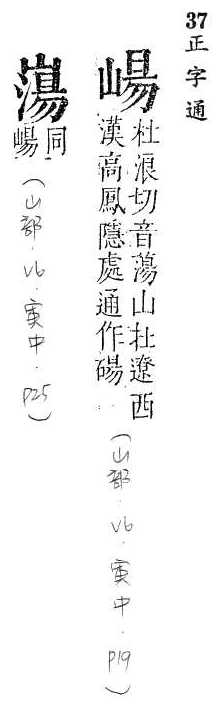 37 正字通
崵
杜浪切音蕩山在遼西
漢高鳳隱處通作碭
(山部.V6.寅中.P19)
同
崵
(山部.V6.寅中.P25)